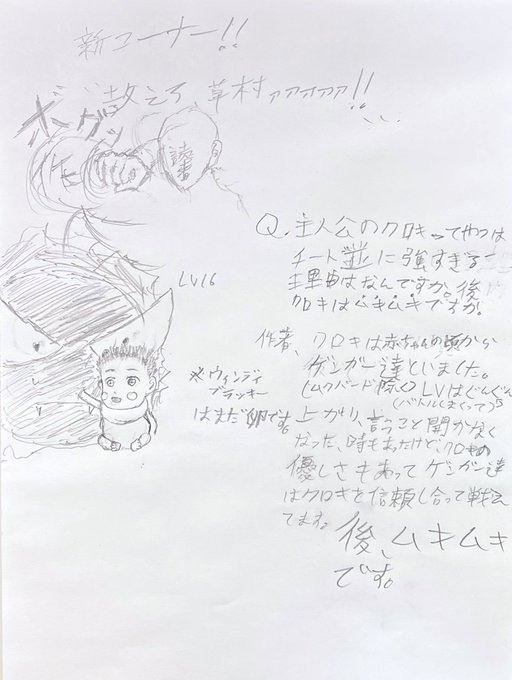 新コーサー!!
故えろ 草村ァァァォァァ!!
ボゴッ
読者
作
Q.主人公のクロキってやつは
チート並に強すぎる
理由はなんですか。後
クロキはムキムキですか。
LV16
作者、クロキは赤ちゃんの頃から
ゲンガー達といました。
(ムクバード除く)LVはぐんぐん
(バトルしまくって)
※ウィンディ
ブラッキー
はまだ卵です。
上がり、言うこと聞かなく
なった、時もあったけど、クロキの
優しさもあってゲンガー達
はクロキと信頼し合って戦え
てます。
後、ムキムキ
です。